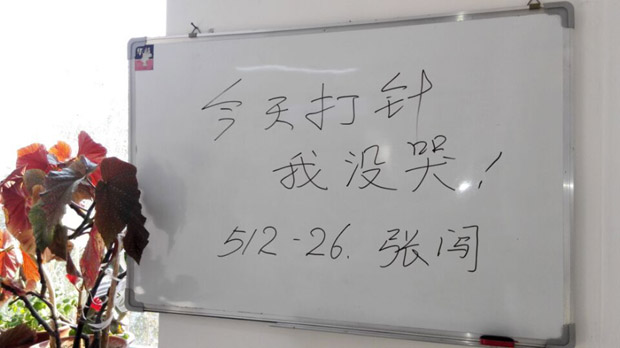 今天打针
我没哭!
512-26. 张闯